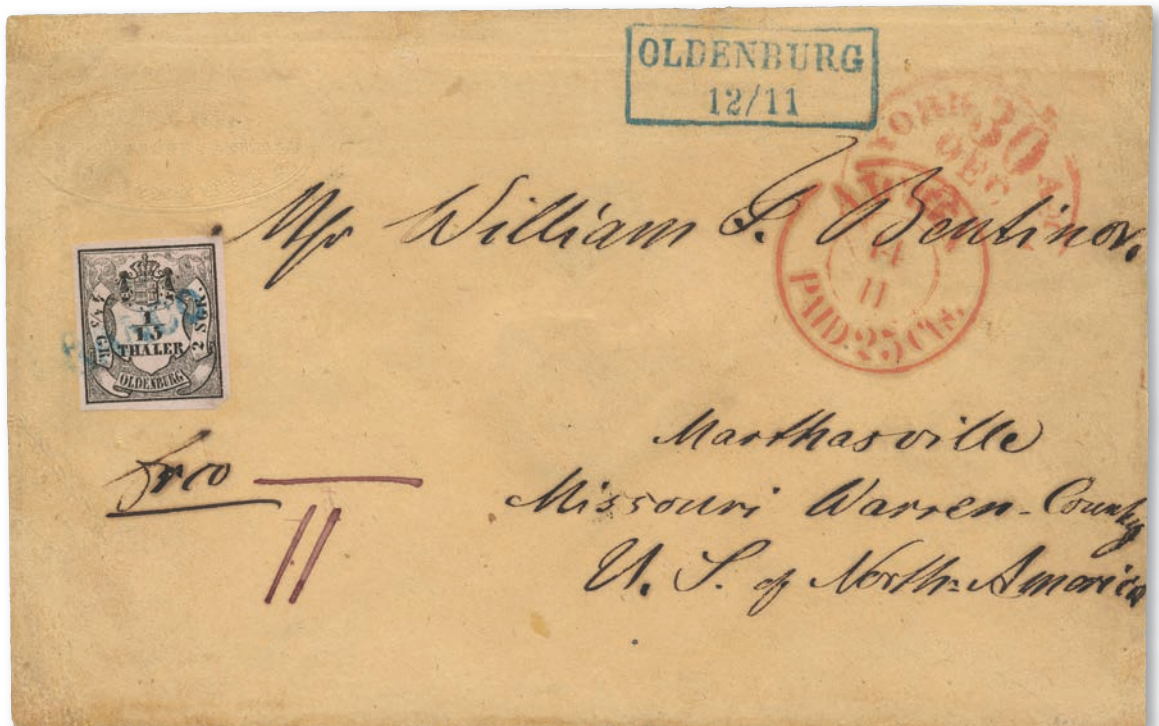 OLDENBURG
12/11
YORK
30
DEC
14
11
PAID 25 Cts.
Mr William J. Bentinor.
4 4/5 GR.
1
15
THALER
2 SGR.
OLDENBURG
frco
11
Marthasville
Missouri Warren-County
U. S. of North-America